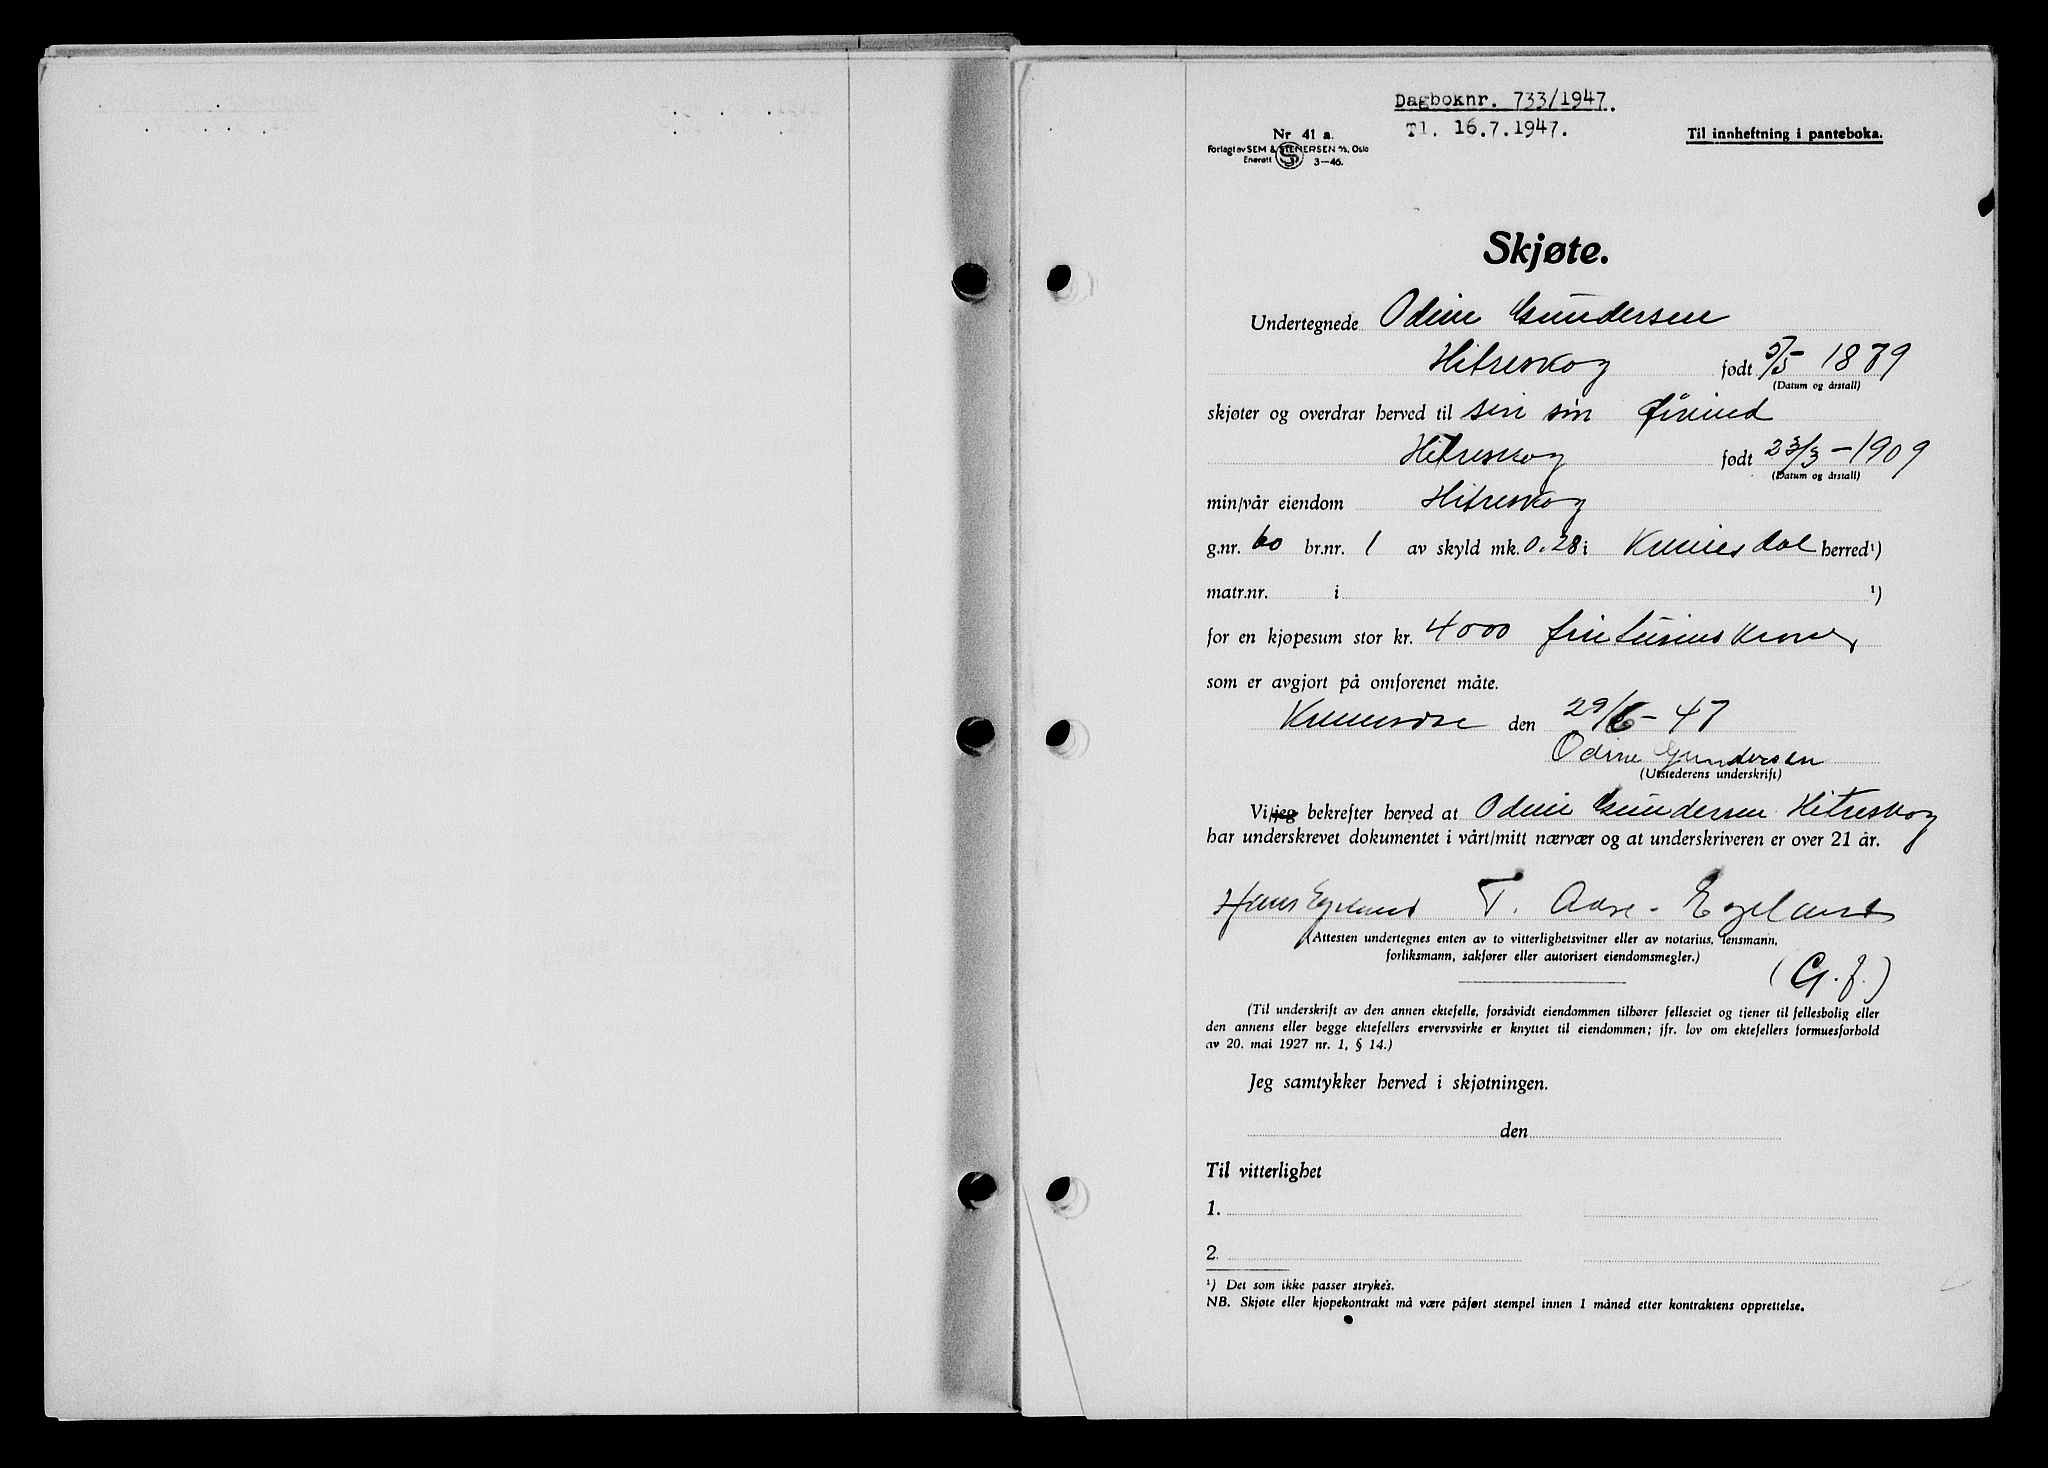 Dagboknr. 733/1947.
Tl. 16.7.1947.
Nr 41 a.
Forlagt av SEM & STENERSEN A/S, Oslo
Enerett SS 3—46.
Til innheftning i panteboka.
Skjøte.
Undertegnede Odine Gundersen
Hitreskog født 5/5 - 1879
skjøter og overdrar herved til sin søn Øivind
Hitreskog født 23/3 - 1909
min/vår eiendom Hitreskog
g.nr. 60 br.nr. 1 av skyld mk. 0.28 i Kvinesdal herred¹)
matr.nr. i ¹)
for en kjøpesum stor kr. 4000 firetusinskroner
som er avgjort på omforenet måte.
den 29/6 - 47
Odine Gundersen
(Utstederens underskrift)
Vi/jeg bekrefter herved at Odine Gundersen Hitreskog
har underskrevet dokumentet i vårt/mitt nærvær og at underskriveren er over 21 år.
Hans Egeland T. Aase-Egeland
(Attesten undertegnes enten av to vitterlighetsvitner eller av notarius, lensmann,
forliksmann, sakfører eller autorisert eiendomsmegler.)
(G.f.)
(Til underskrift av den annen ektefelle, forsåvidt eiendommen tilhører felleseiet og tjener til fellesbolig eller
den annens eller begge ektefellers ervervsvirke er knyttet til eiendommen; jfr. lov om ektefellers formuesforhold
av 20. mai 1927 nr. 1, § 14.)
Jeg samtykker herved i skjøtningen.
den
Til vitterlighet
1.
2.
¹) Det som ikke passer strykes.
NB. Skjøte eller kjøpekontrakt må være påført stempel innen 1 måned etter kontraktens opprettelse.